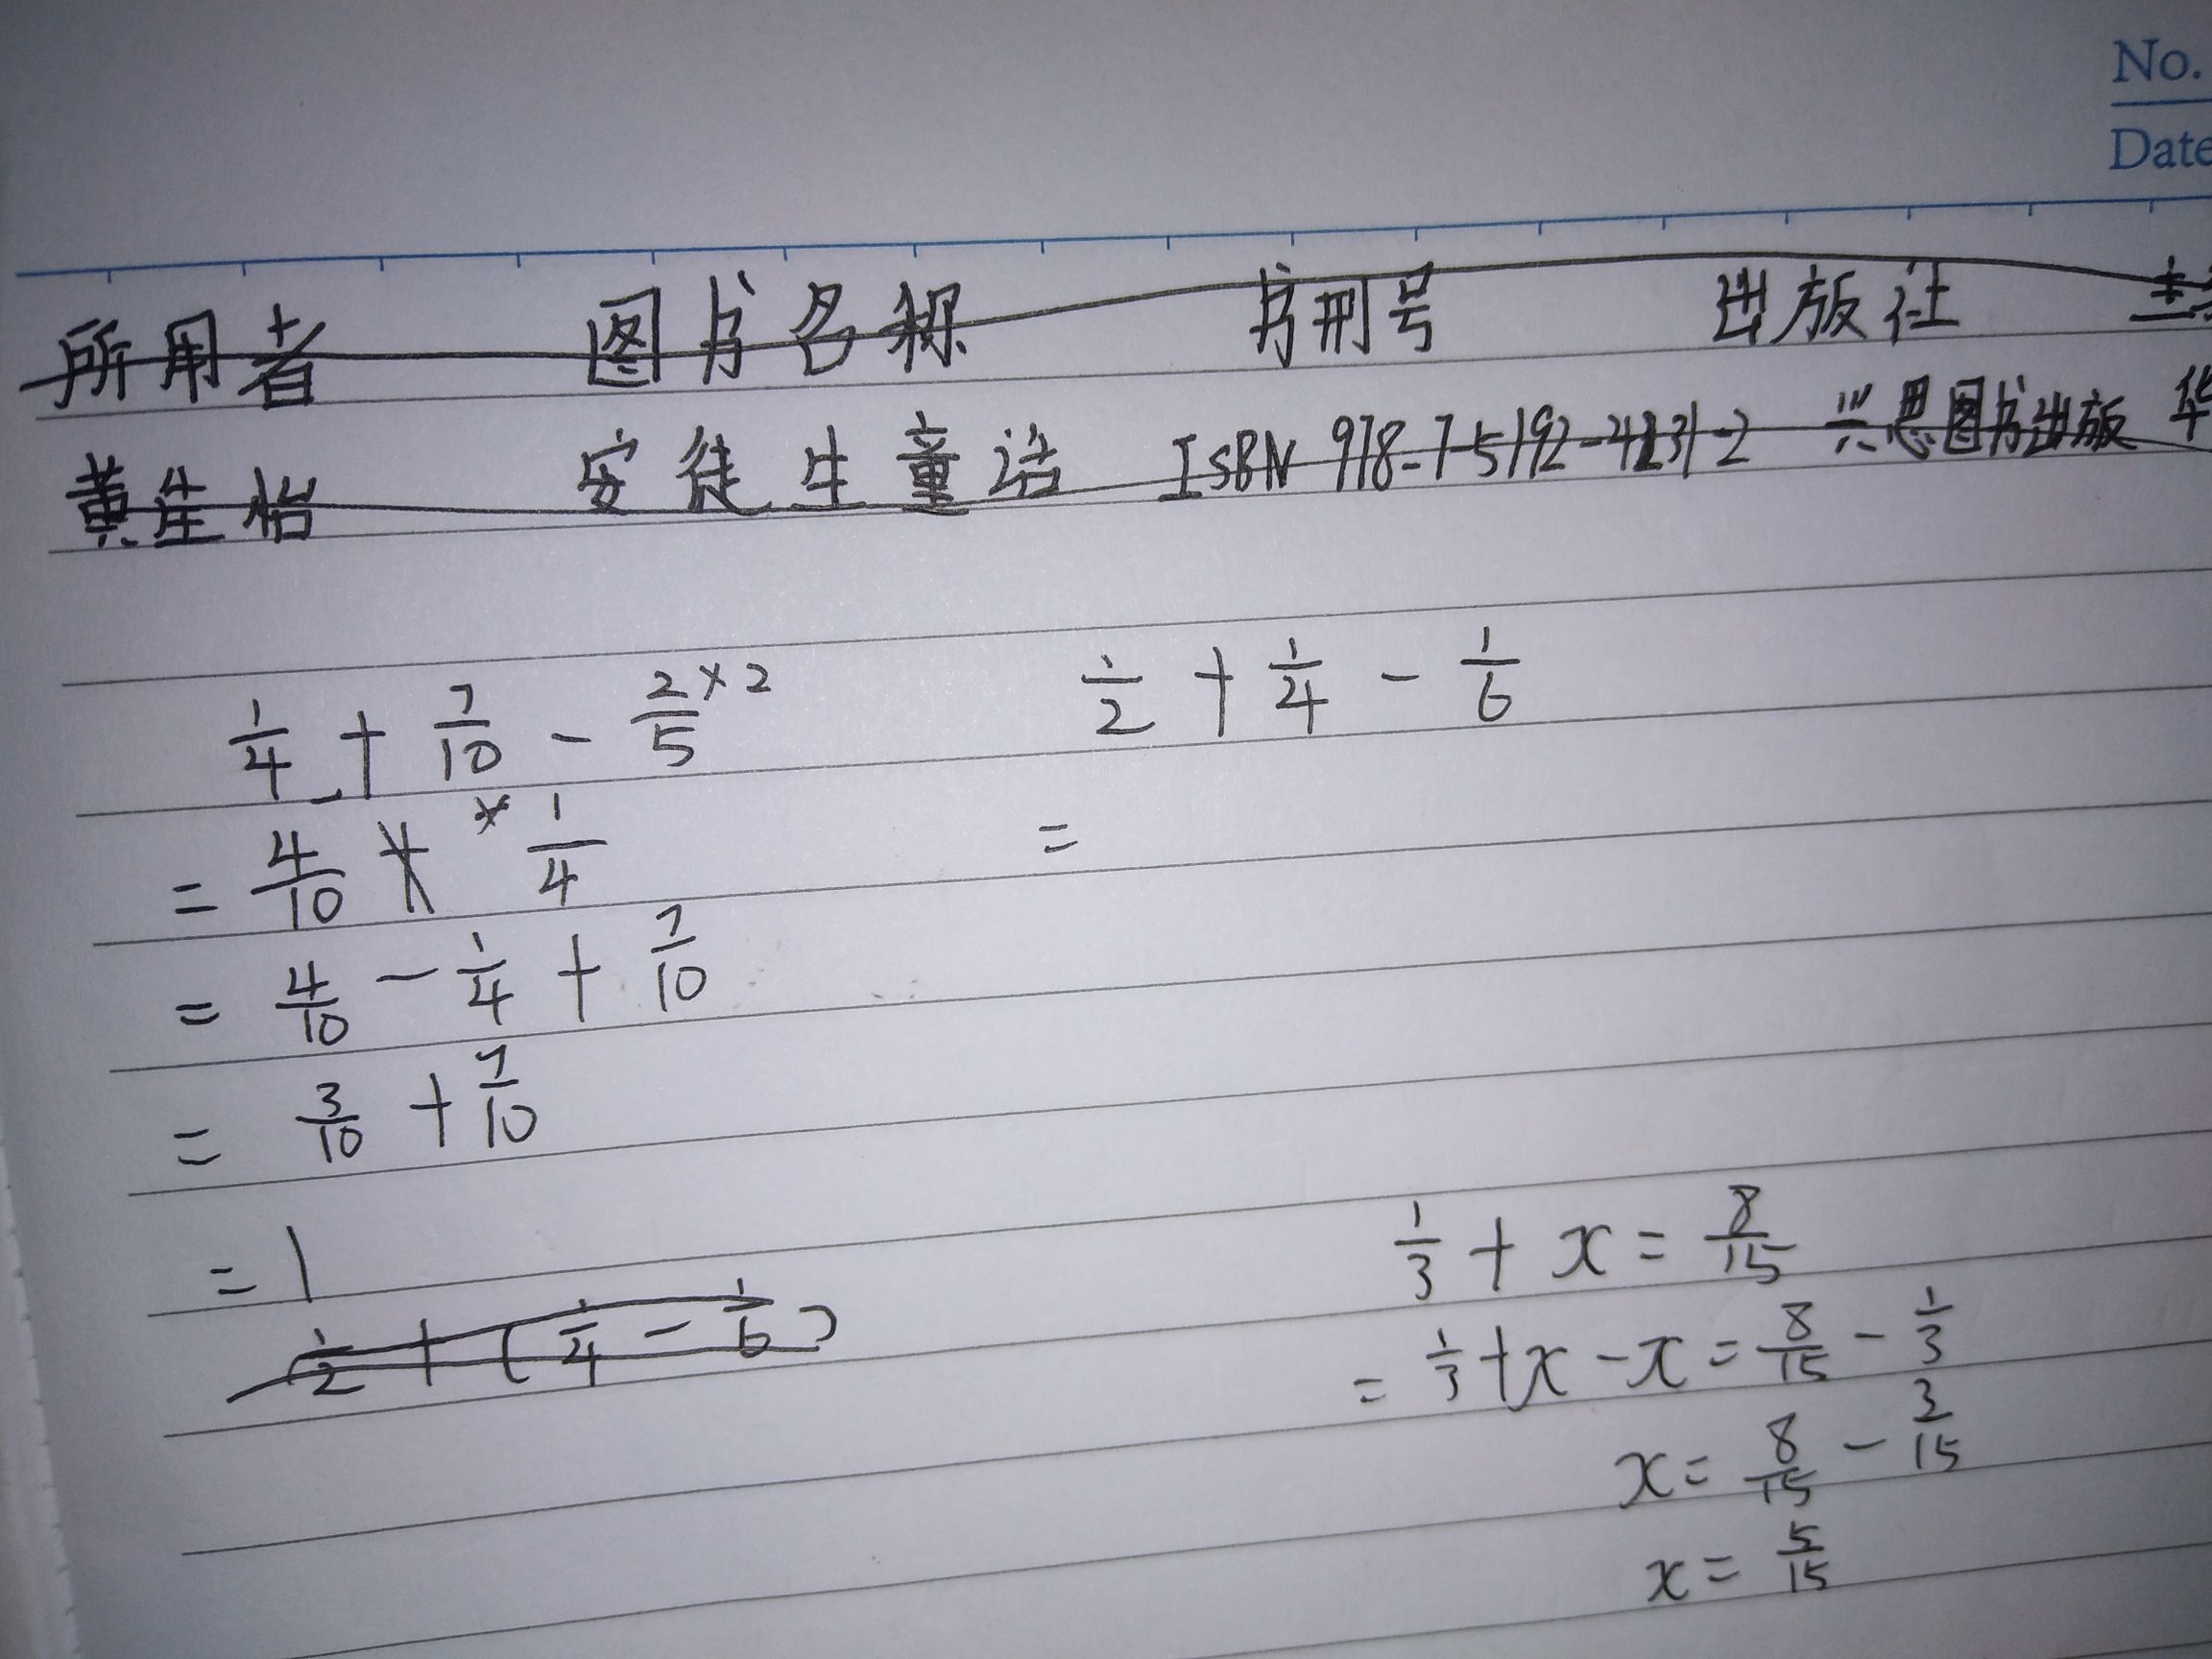 No.
Date
所用者 图书名称 书刑号 出版社
黄生怡 安徒生童话 ISBN 978-7-5192-4231-2 兴思图书出版 华
1/4 + 7/10 - 2/5 ×2
= 4/10 × 1/4
= 4/10 - 1/4 + 7/10
= 3/10 + 7/10
= 1
1/2 + (1/4 - 1/6)
1/2 + 1/4 - 1/6
=
1/3 + x = 8/15
= 1/3 + x - x = 8/15 - 1/3
x = 8/15 - 3/15
x = 5/15